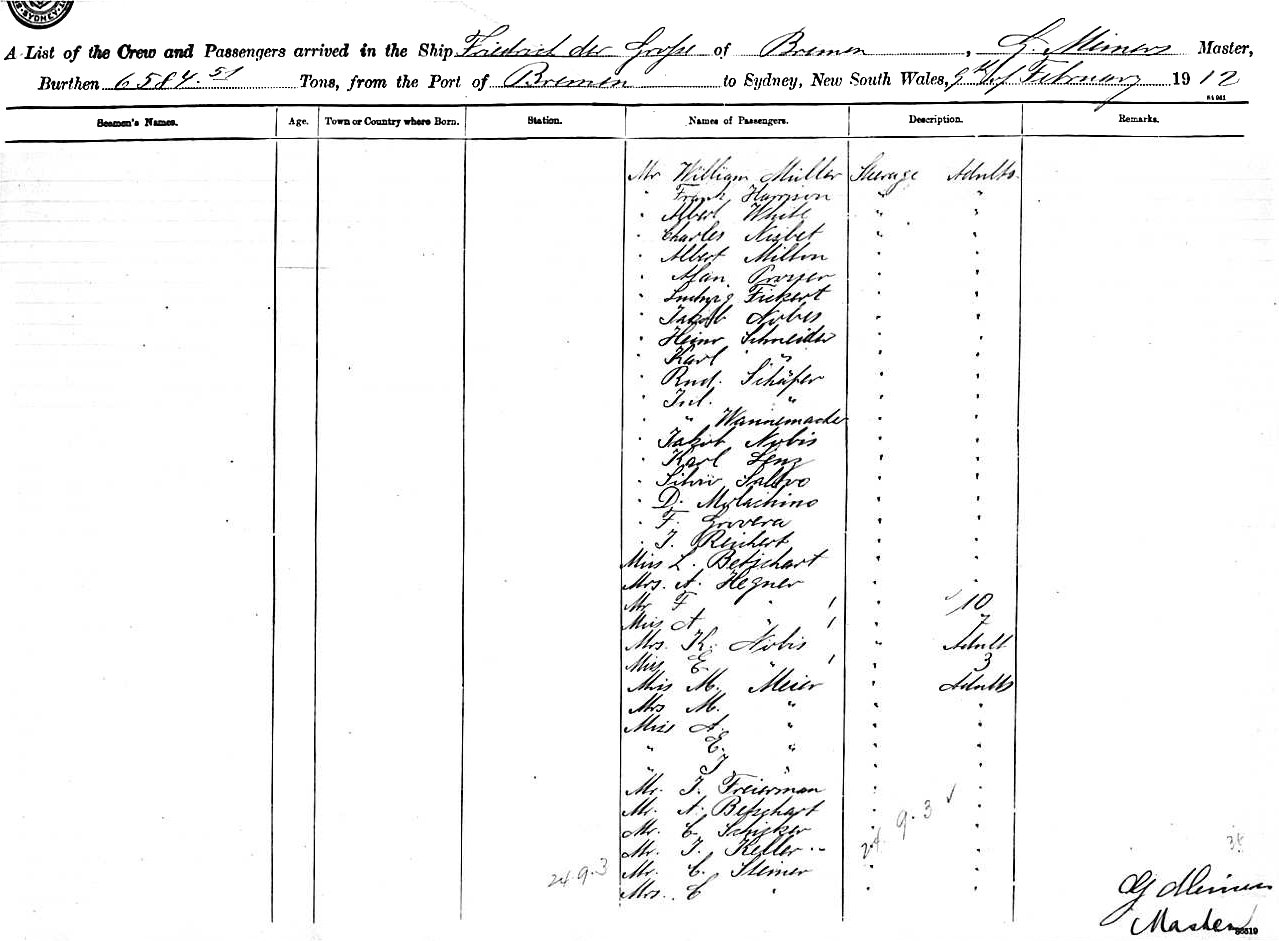 SYDNEY
A List of the Crew and Passengers arrived in the Ship Friedrich der Große of Bremen, G. Meiners Master,
Burthen 6584.51 Tons, from the Port of Bremen to Sydney, New South Wales, 9th of February 1912
Seamen's Names. Age. Town or Country where Born. Station. Names of Passengers. Description. Remarks.
Mr William Müller Steerage Adults.
" Frank Harrison " "
" Albert White " "
" Charles Nisbet " "
" Albert Milton " "
" Alan Prosser " "
" Ludwig Fickert " "
" Jakob Nobis " "
" Heinr Schneider " "
" Karl " " "
" Rud. Schäfer " "
" Jul. " " "
" " Wannemacher " "
" Jakob Nobis " "
" Karl Lenz " "
" Silvio Salvo " "
" D. " "
" F. Govera " "
" J. Reichert " "
Miss L. Betschart " "
Mrs. A. Hegner " "
Mr F " 1 " 10
Miss A " 1 " 7
Mrs. K. Nobis " Adult
Miss E " 1 " 3
Miss M. Meier " Adults
Mrs M. " " "
Miss A. " " "
" E. " " "
" J " " "
Mr. J. Freierman " "
Mr. A. Betschart " "
Mr. C. Schicker " "
Mr. J. Keller " "
Mr. C. Steiner " "
Mrs. C " " "
24 9.3
24. 9.3
38
G Meiners
Master